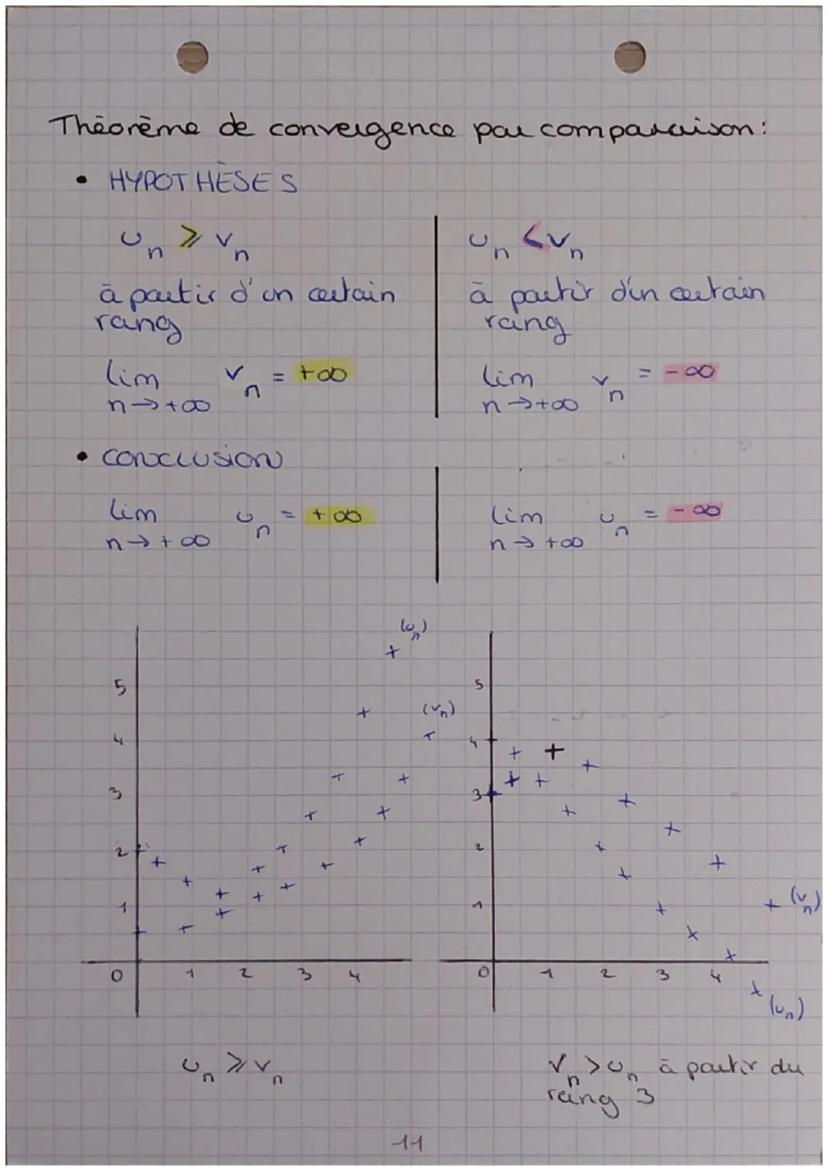 Théorème de convergence par comparaison:
• HYPOTHÈSES
u_n ⩾ v_n
à partir d'un certain
rang
lim v_n = +∞
n→+∞
u_n < v_n
à partir d'un certain
rang
lim v_n = -∞
n→+∞
• CONCLUSION
lim u_n = +∞
n→+∞
lim u_n = -∞
n→+∞
(u_n)
(v_n)
5
4
3
2
1
0 1 2 3 4
5
4
3
2
1
0 1 2 3 4
(v_n)
(u_n)
u_n ⩾ v_n
v_n > u_n à partir du
rang 3
11